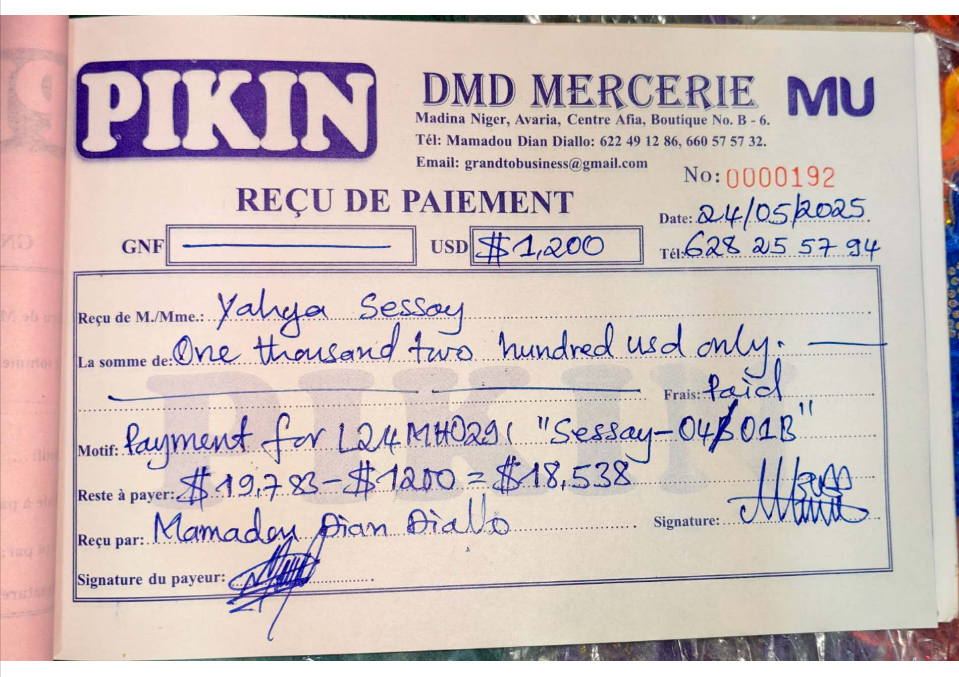 PIKIN
DMD MERCERIE
MU
Madina Niger, Avaria, Centre Afia, Boutique No. B - 6.
Tél: Mamadou Dian Diallo: 622 49 12 86, 660 57 57 32.
Email: grandtobusiness@gmail.com
No: 0000192
REÇU DE PAIEMENT
Date: 24/05/2025
GNF
USD $1,200
Tél: 628 25 57 94
Reçu de M./Mme.: Yahya Sessay
La somme de: One thousand two hundred usd only.
Frais: Paid
Motif: Payment for L24MH0291 "Sessay-04 01B"
Reste à payer: $19,783 - $1200 = $18,538
Reçu par: Mamadou Dian Diallo
Signature:
Signature du payeur:
PIKIN